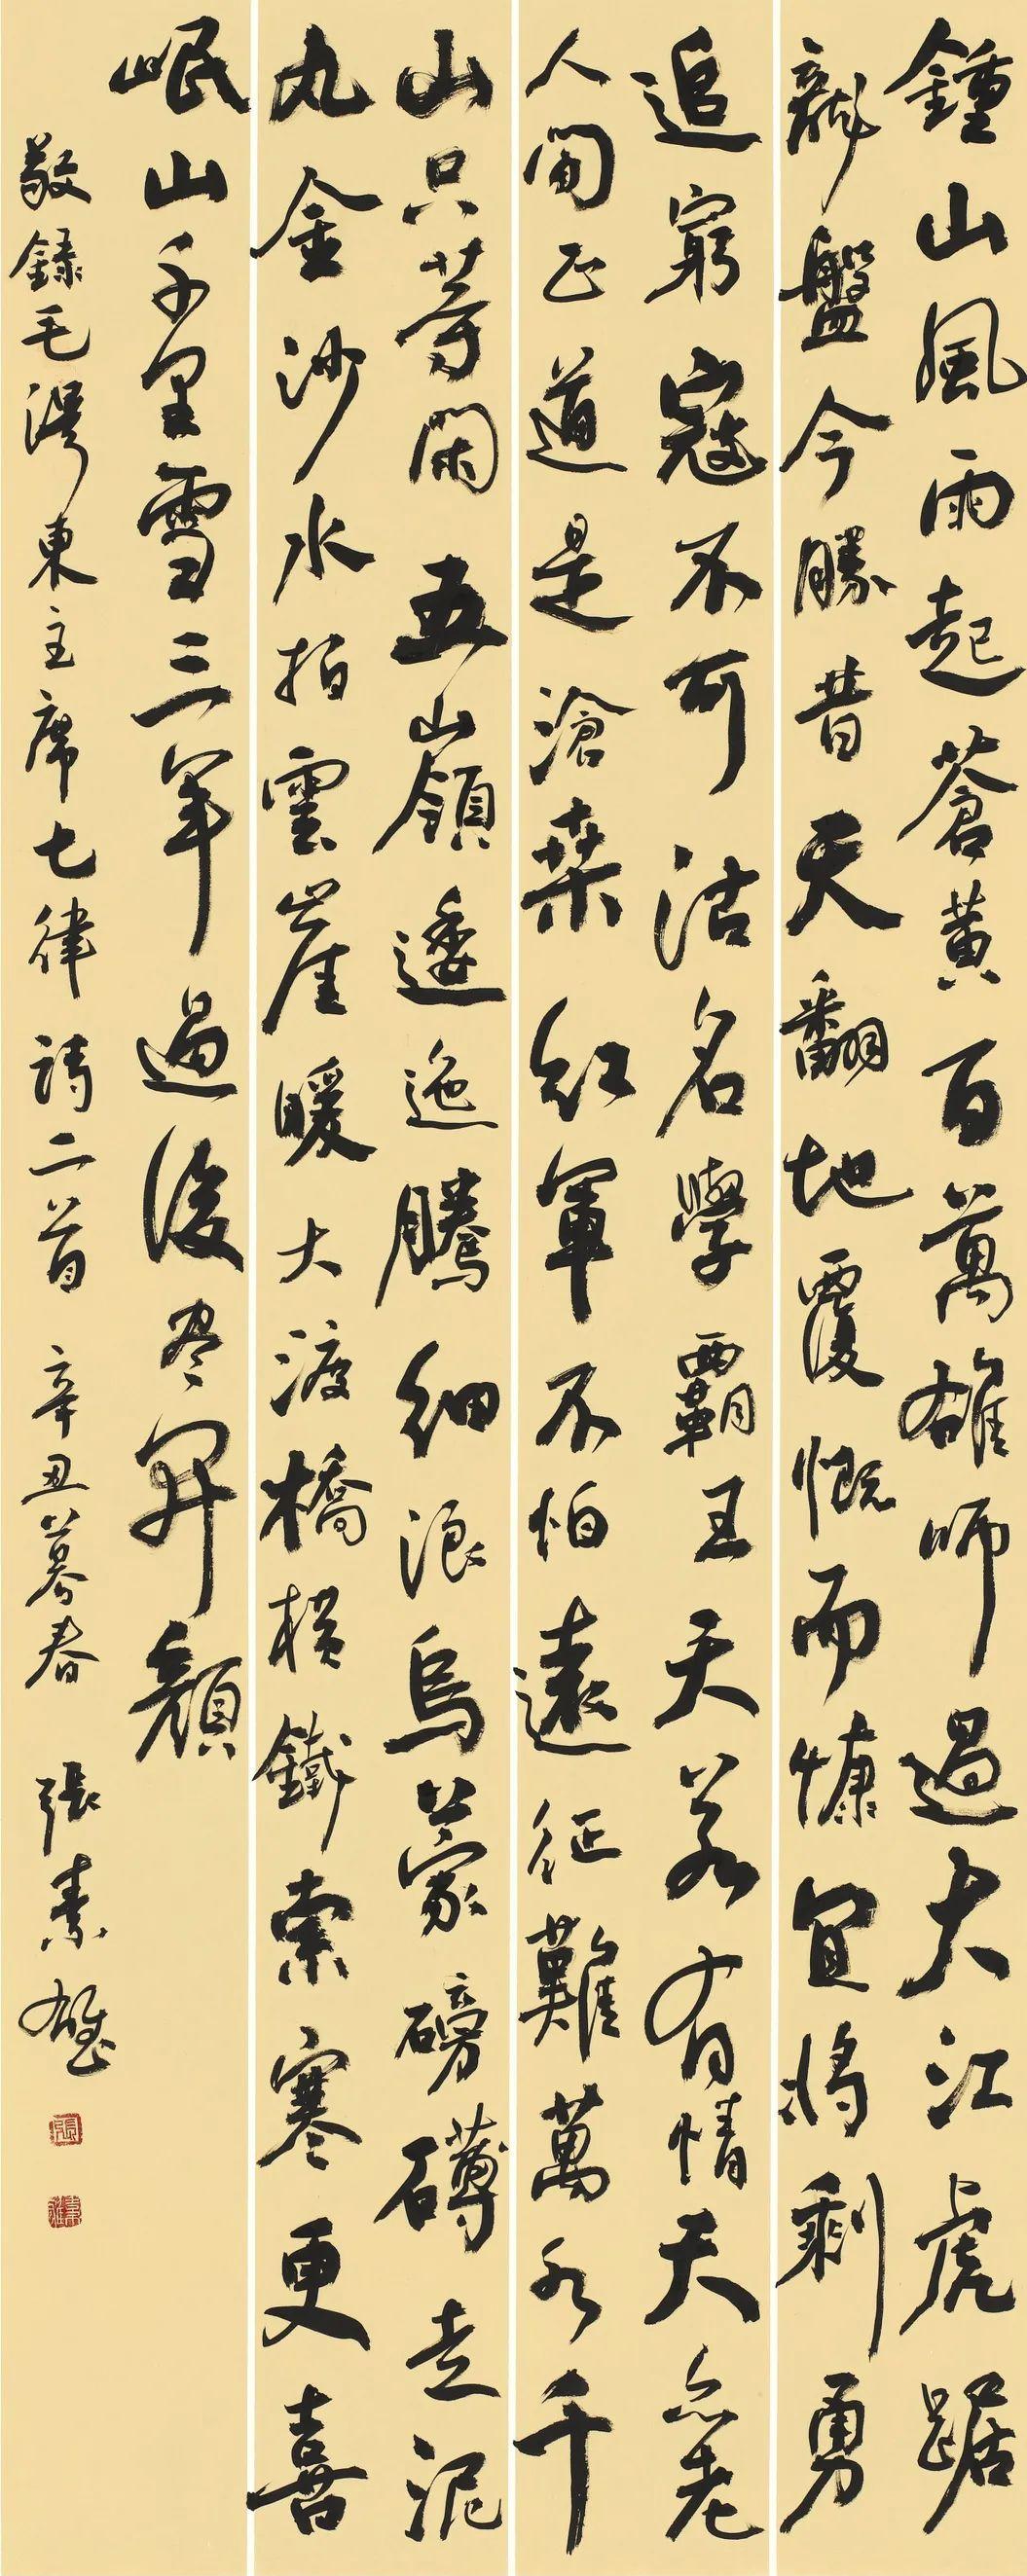 鍾山風雨起蒼黃百萬雄師過大江虎踞
龍盤今勝昔天翻地覆慨而慷宜將剩勇
追窮寇不可沽名學霸王天若有情天亦老
人間正道是滄桑紅軍不怕遠征難萬水千
山只等閑五嶺逶迤騰細浪烏蒙磅礴走泥
丸金沙水拍雲崖暖大渡橋橫鐵索寒更喜
岷山千里雪三軍過後尽開顏
敬錄毛澤東主席七律詩二首 辛丑暮春 張素雄
張
素雄